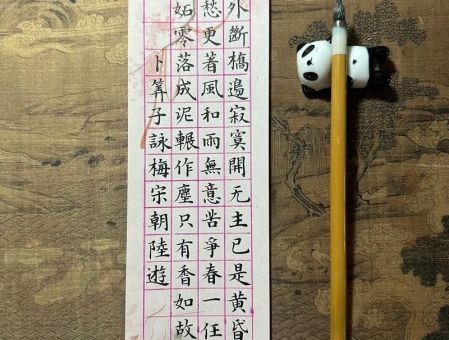 外斷橋邊寂寞開无主已是黃昏
愁更著風和雨無意苦爭春一任
妬零落成泥輾作塵只有香如故
卜筭子詠梅宋朝陸遊